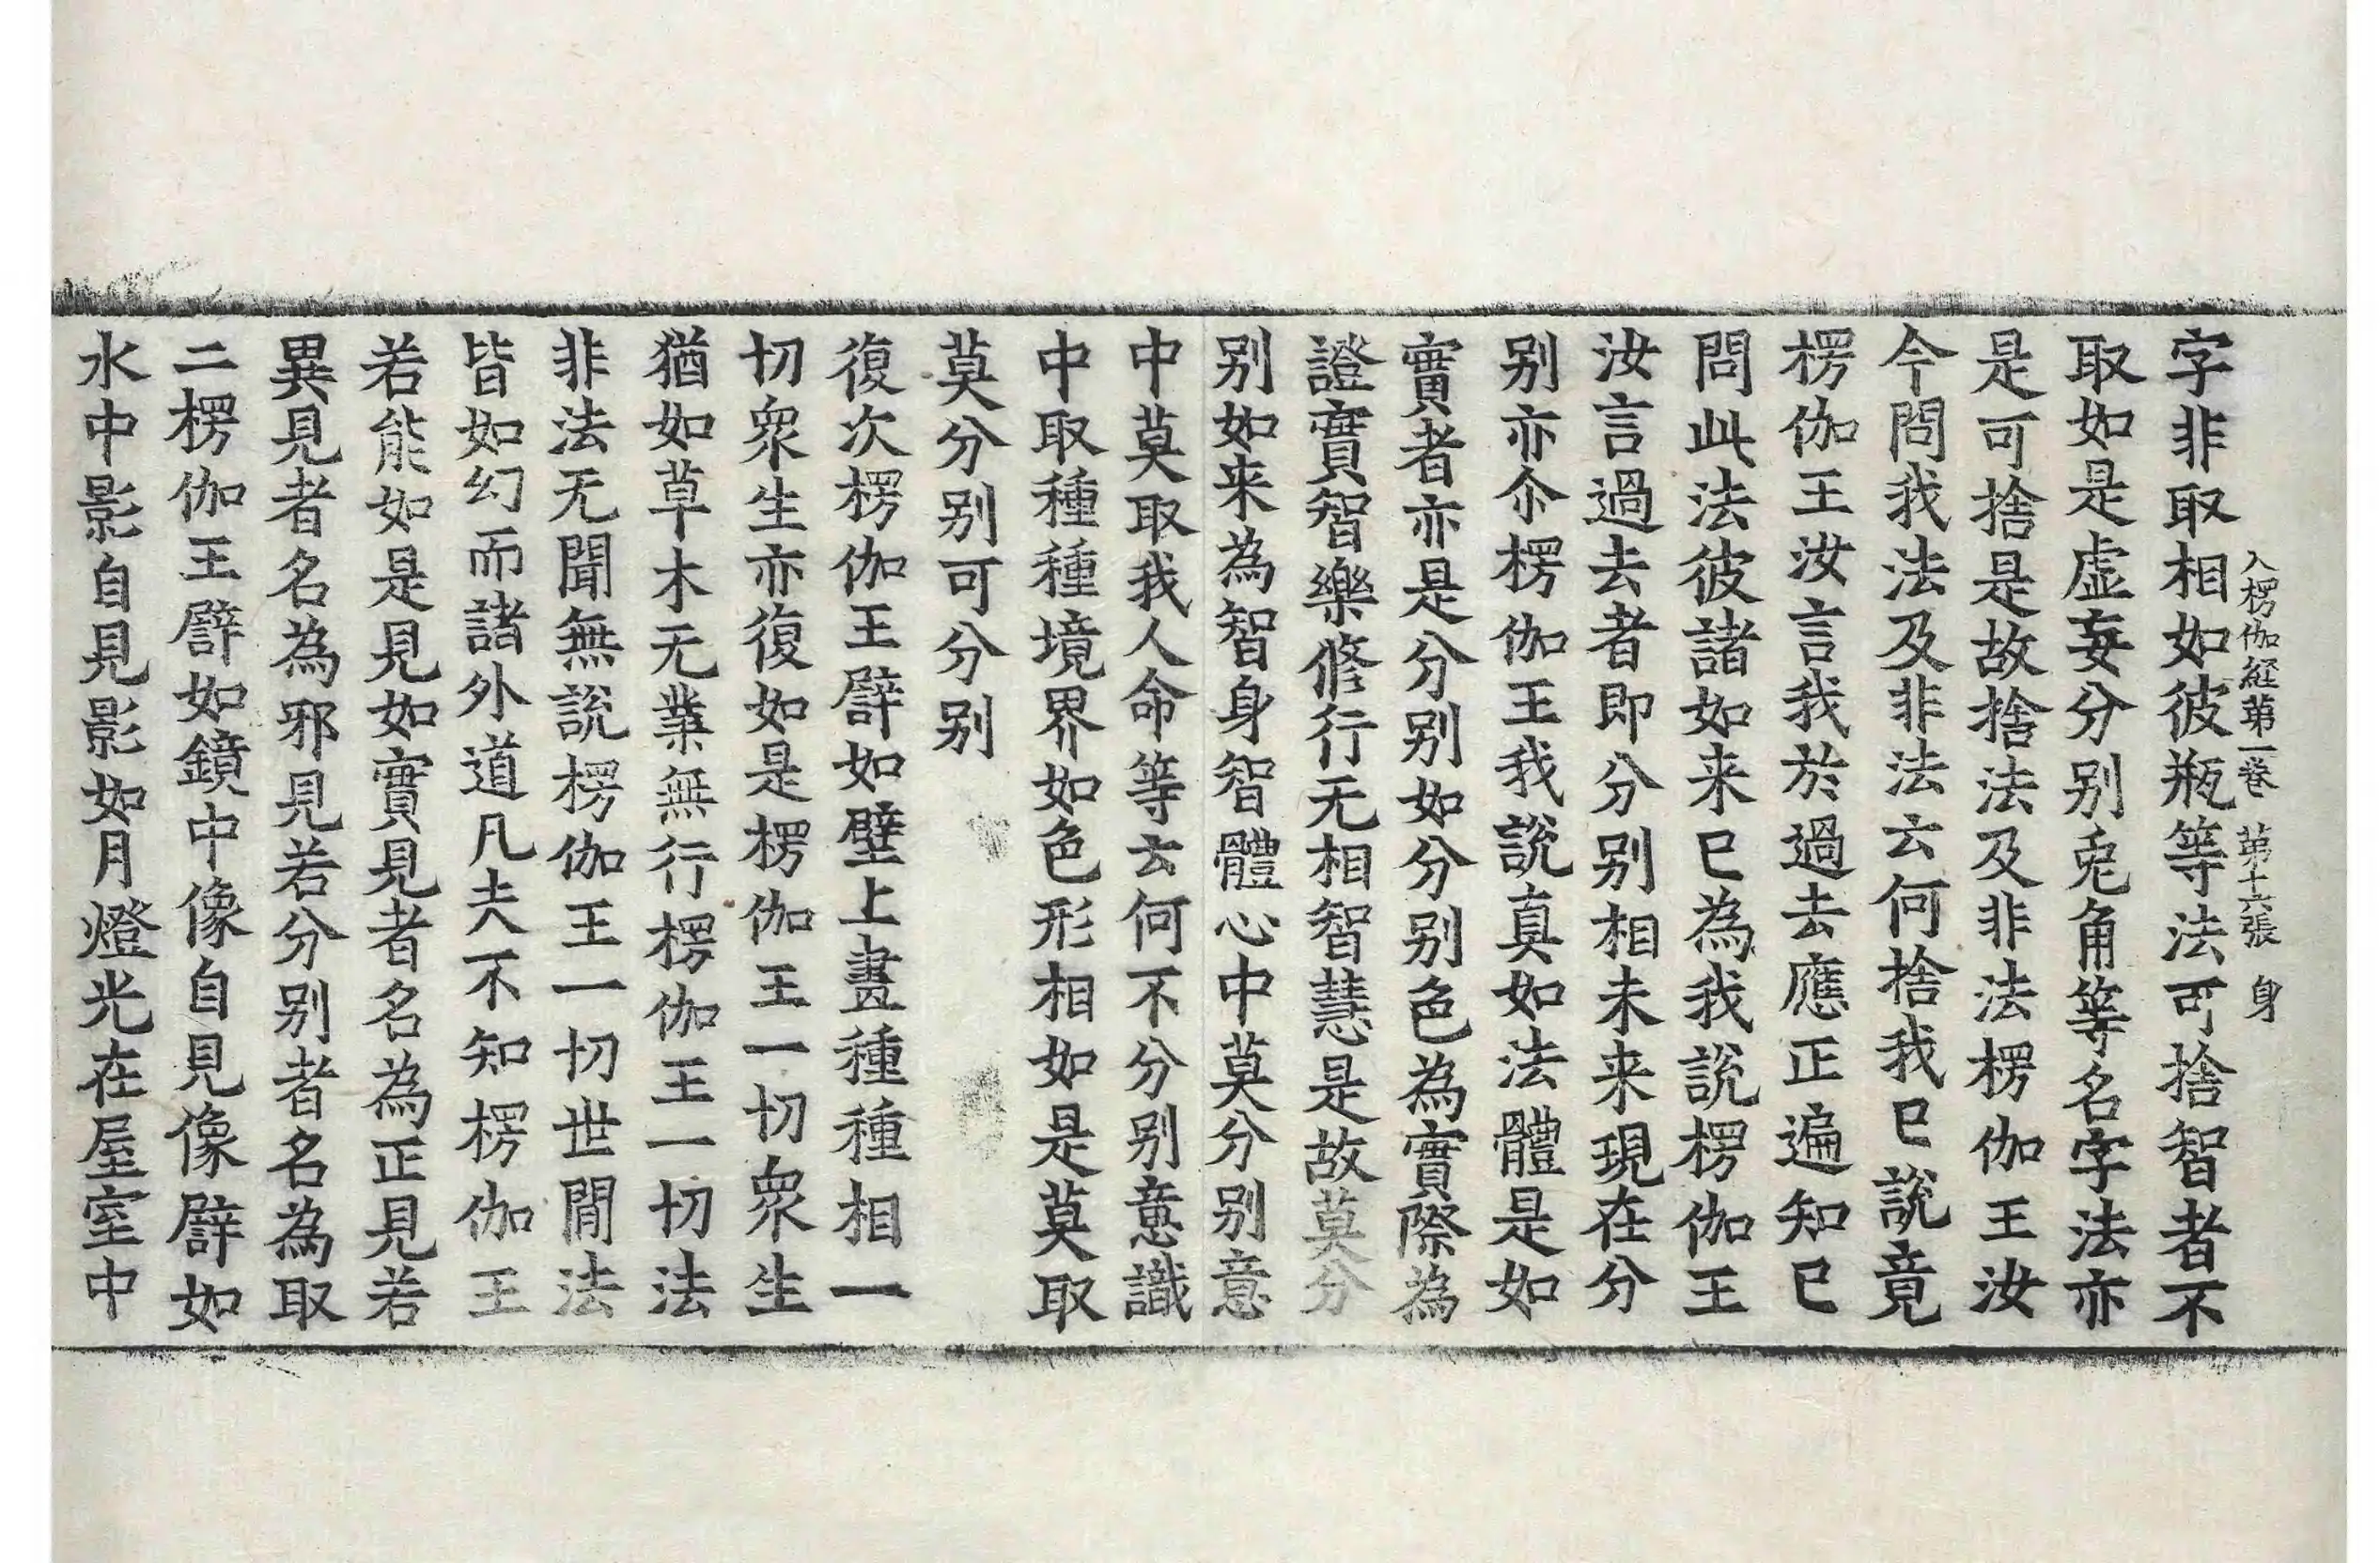 入楞伽經第一卷 第十六張 身
字非取相如彼瓶等法可捨智者不
取如是虛妄分别兎角等名字法亦
是可捨是故捨法及非法楞伽王汝
今問我法及非法云何捨我已說竟
楞伽王汝言我於過去應正遍知已
問此法彼諸如来已為我說楞伽王
汝言過去者即分别相未来現在分
别亦尒楞伽王我說真如法體是如
實者亦是分别如分别色為實際為
證實智樂修行无相智慧是故莫分
别如来為智身智體心中莫分别意
中莫取我人命等云何不分别意識
中取種種境界如色形相如是莫取
莫分别可分别
復次楞伽王譬如壁上畫種種相一
切衆生亦復如是楞伽王一切衆生
猶如草木无業無行楞伽王一切法
非法无聞無說楞伽王一切世間法
皆如幻而諸外道凡夫不知楞伽王
若能如是見如實見者名為正見若
異見者名為邪見若分别者名為取
二楞伽王譬如鏡中像自見像譬如
水中影自見影如月燈光在屋室中